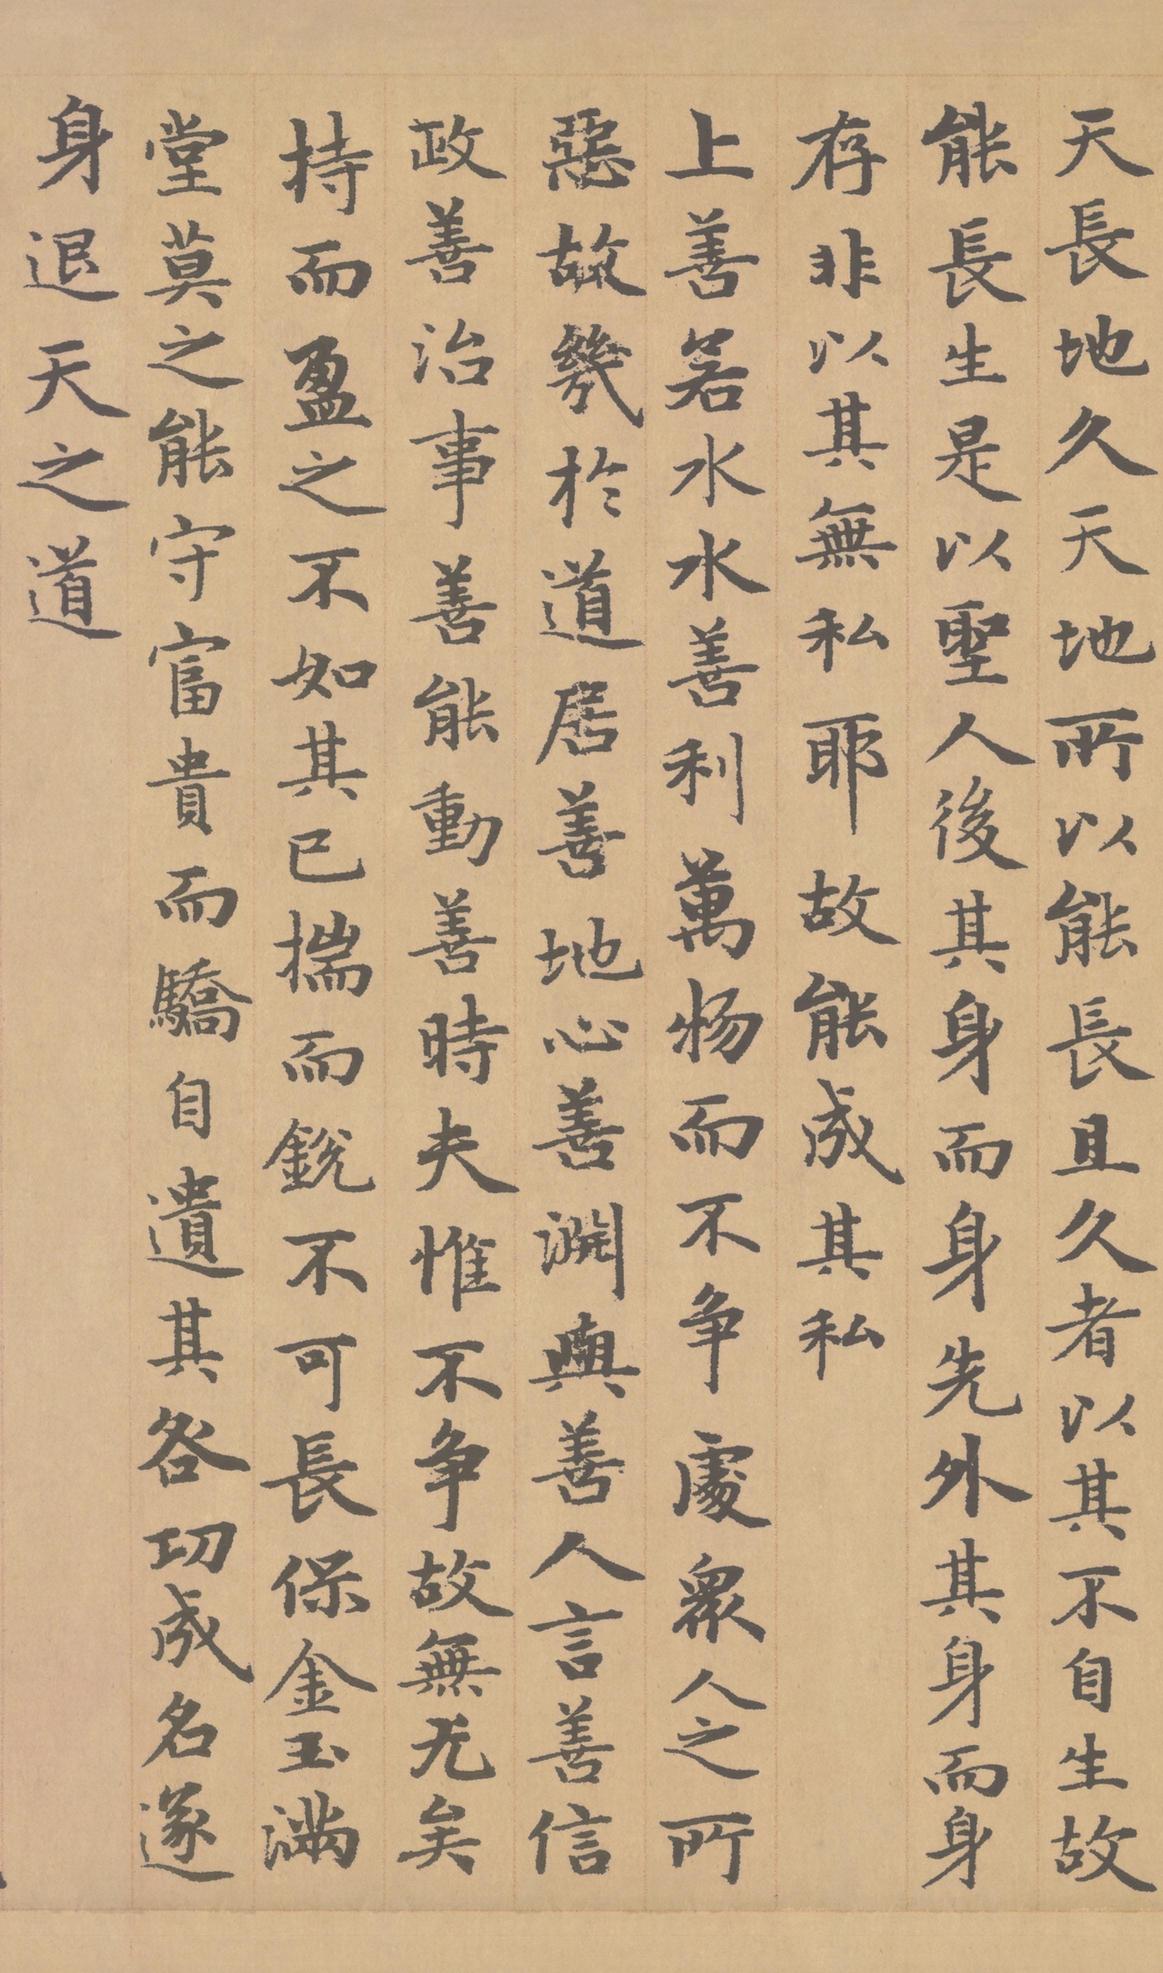 天長地久天地所以能長且久者以其不自生故
能長生是以聖人後其身而身先外其身而身
存非以其無私耶故能成其私
上善若水水善利萬物而不争處衆人之所
惡故幾於道居善地心善淵與善人言善信
政善治事善能動善時夫惟不争故無尤矣
持而盈之不如其已揣而銳不可長保金玉滿
堂莫之能守富貴而驕自遺其咎功成名遂
身退天之道